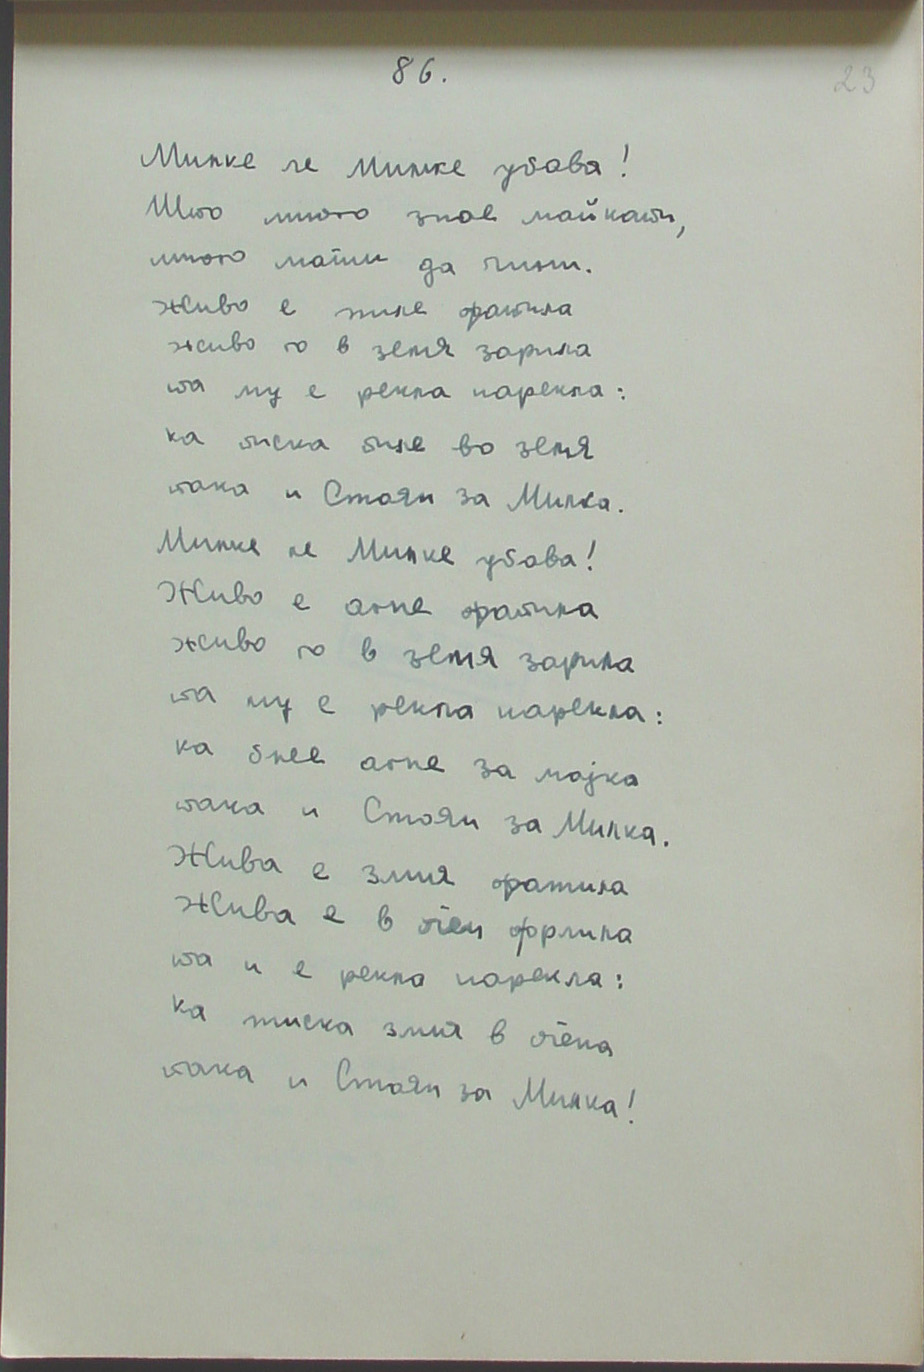 86.
23
Милке ле Милке убава!
Што много знае майкати,
много маѓии да чини.
Живо е пиле фатила
живо го в земя зарила
та му е рекла нарекла:
ка писка пиле во земя
така и Стоян за Милка.
Милке ле Милке убава!
Живо е агне фатила
живо го в земя зарила
та му е рекла нарекла:
ка блее агне за мајка
така и Стоян за Милка.
Жива е змия фатила
Жива е в оѓен фрлила
та и е рекла нарекла:
ка писка змия в оѓена
така и Стоян за Милка!